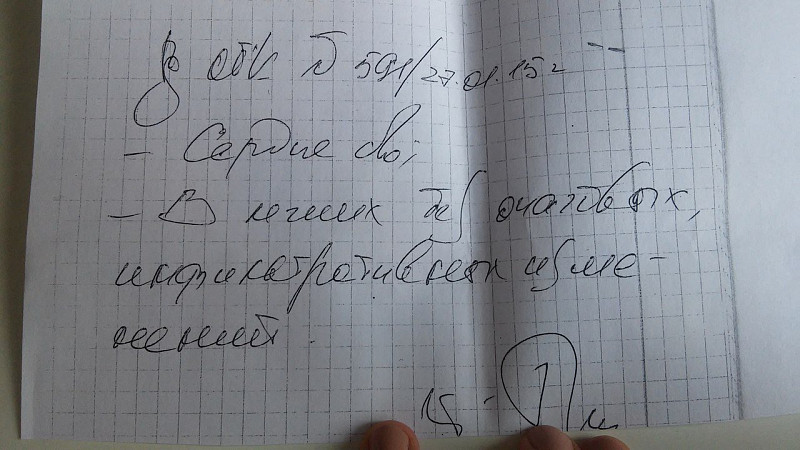 ОГК N 591/27.01.15г
- Сердце
- В легких без очаговых,
инфильтративных изме-
нений.